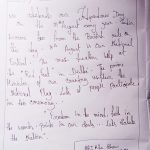 we celebrate our Independence Day
on 15th August every year. India
became free from the British rule on
this day. 15th August is our National
festival. The main function held at
the Red fort - Delhi. The prime
Minister of our Country unfurls the
National Flag. lots of people participate
in the ceremony.
"Freedom in the mind, faith in
the words, pride in our souls. Lets salute
the Nation"